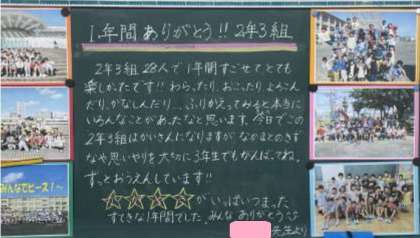 1年間ありがとう!! 2年3組
2年3組28人で1年間すごせてとても
楽しかったです!! わらったり、おこったり、よろこん
だり、かなしんだり…、ふりかえってみると本当に
いろんなことがあったなと思います。今日でこの
2年3組はかいさんになりますが、なかまとのきず
なや思いやりを大切に3年生でもがんばってね。
ずっとおうえんしています!!
☆☆☆☆がいっぱいつまった
すてきな1年間でした。みんなありがとう
先生より
みんなでピース！～